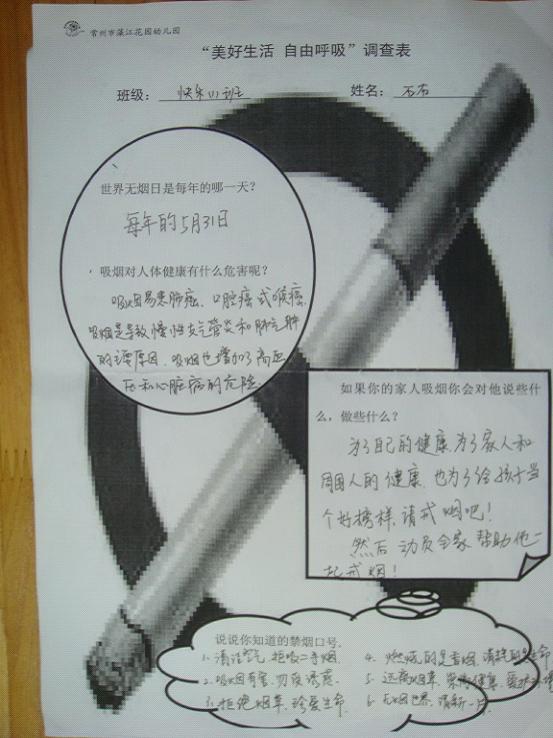 常州市藻江花园幼儿园
“美好生活 自由呼吸”调查表
班级： 快乐(1)班 姓名： 石石
世界无烟日是每年的哪一天？
每年的5月31日
吸烟对人体健康有什么危害呢？
吸烟易患肺癌、口腔癌或喉癌,
吸烟是导致慢性支气管炎和肺气肿
的主要原因，吸烟也增加了高血
压和心脏病的危险.
如果你的家人吸烟你会对他说些什
么，做些什么？
为了自己的健康,为了家人和
周围人的健康,也为了给孩子当
个好榜样,请戒烟吧！
然后 动员全家 帮助他一
起戒烟！
说说你知道的禁烟口号.
1. 清洁空气,拒吸二手烟.
2. 吸烟有害,勿受诱惑.
3. 拒绝烟草,珍爱生命.
4. 燃烧的是香烟,消耗的是生命
5. 远离烟草,
6. 无烟世界,清新一片